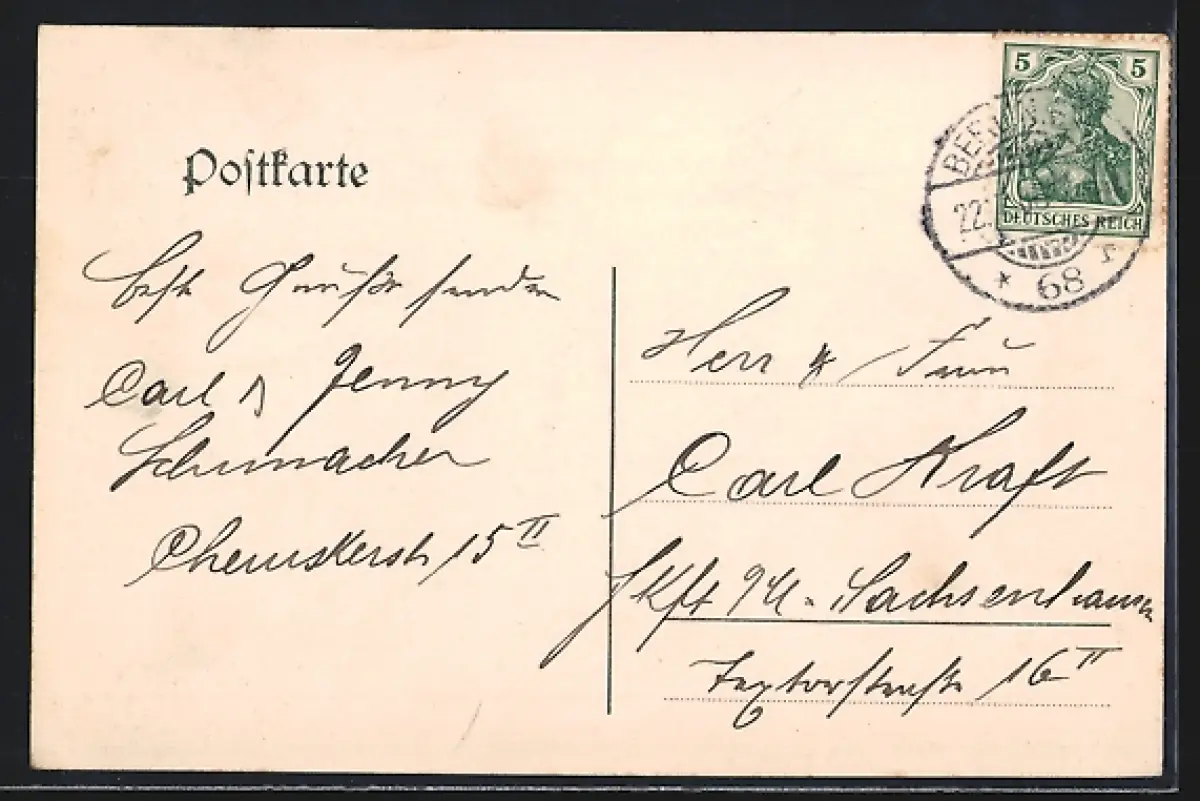 Postkarte
5 5
DEUTSCHES REICH
BERLIN
22.
* 68 r
Beste Grüße senden
Carl & Jenny
Schumacher
15 II
Herr & Frau
Carl Kraft
Fkft a/M. Sachsenhausen
Textorstraße 16 II